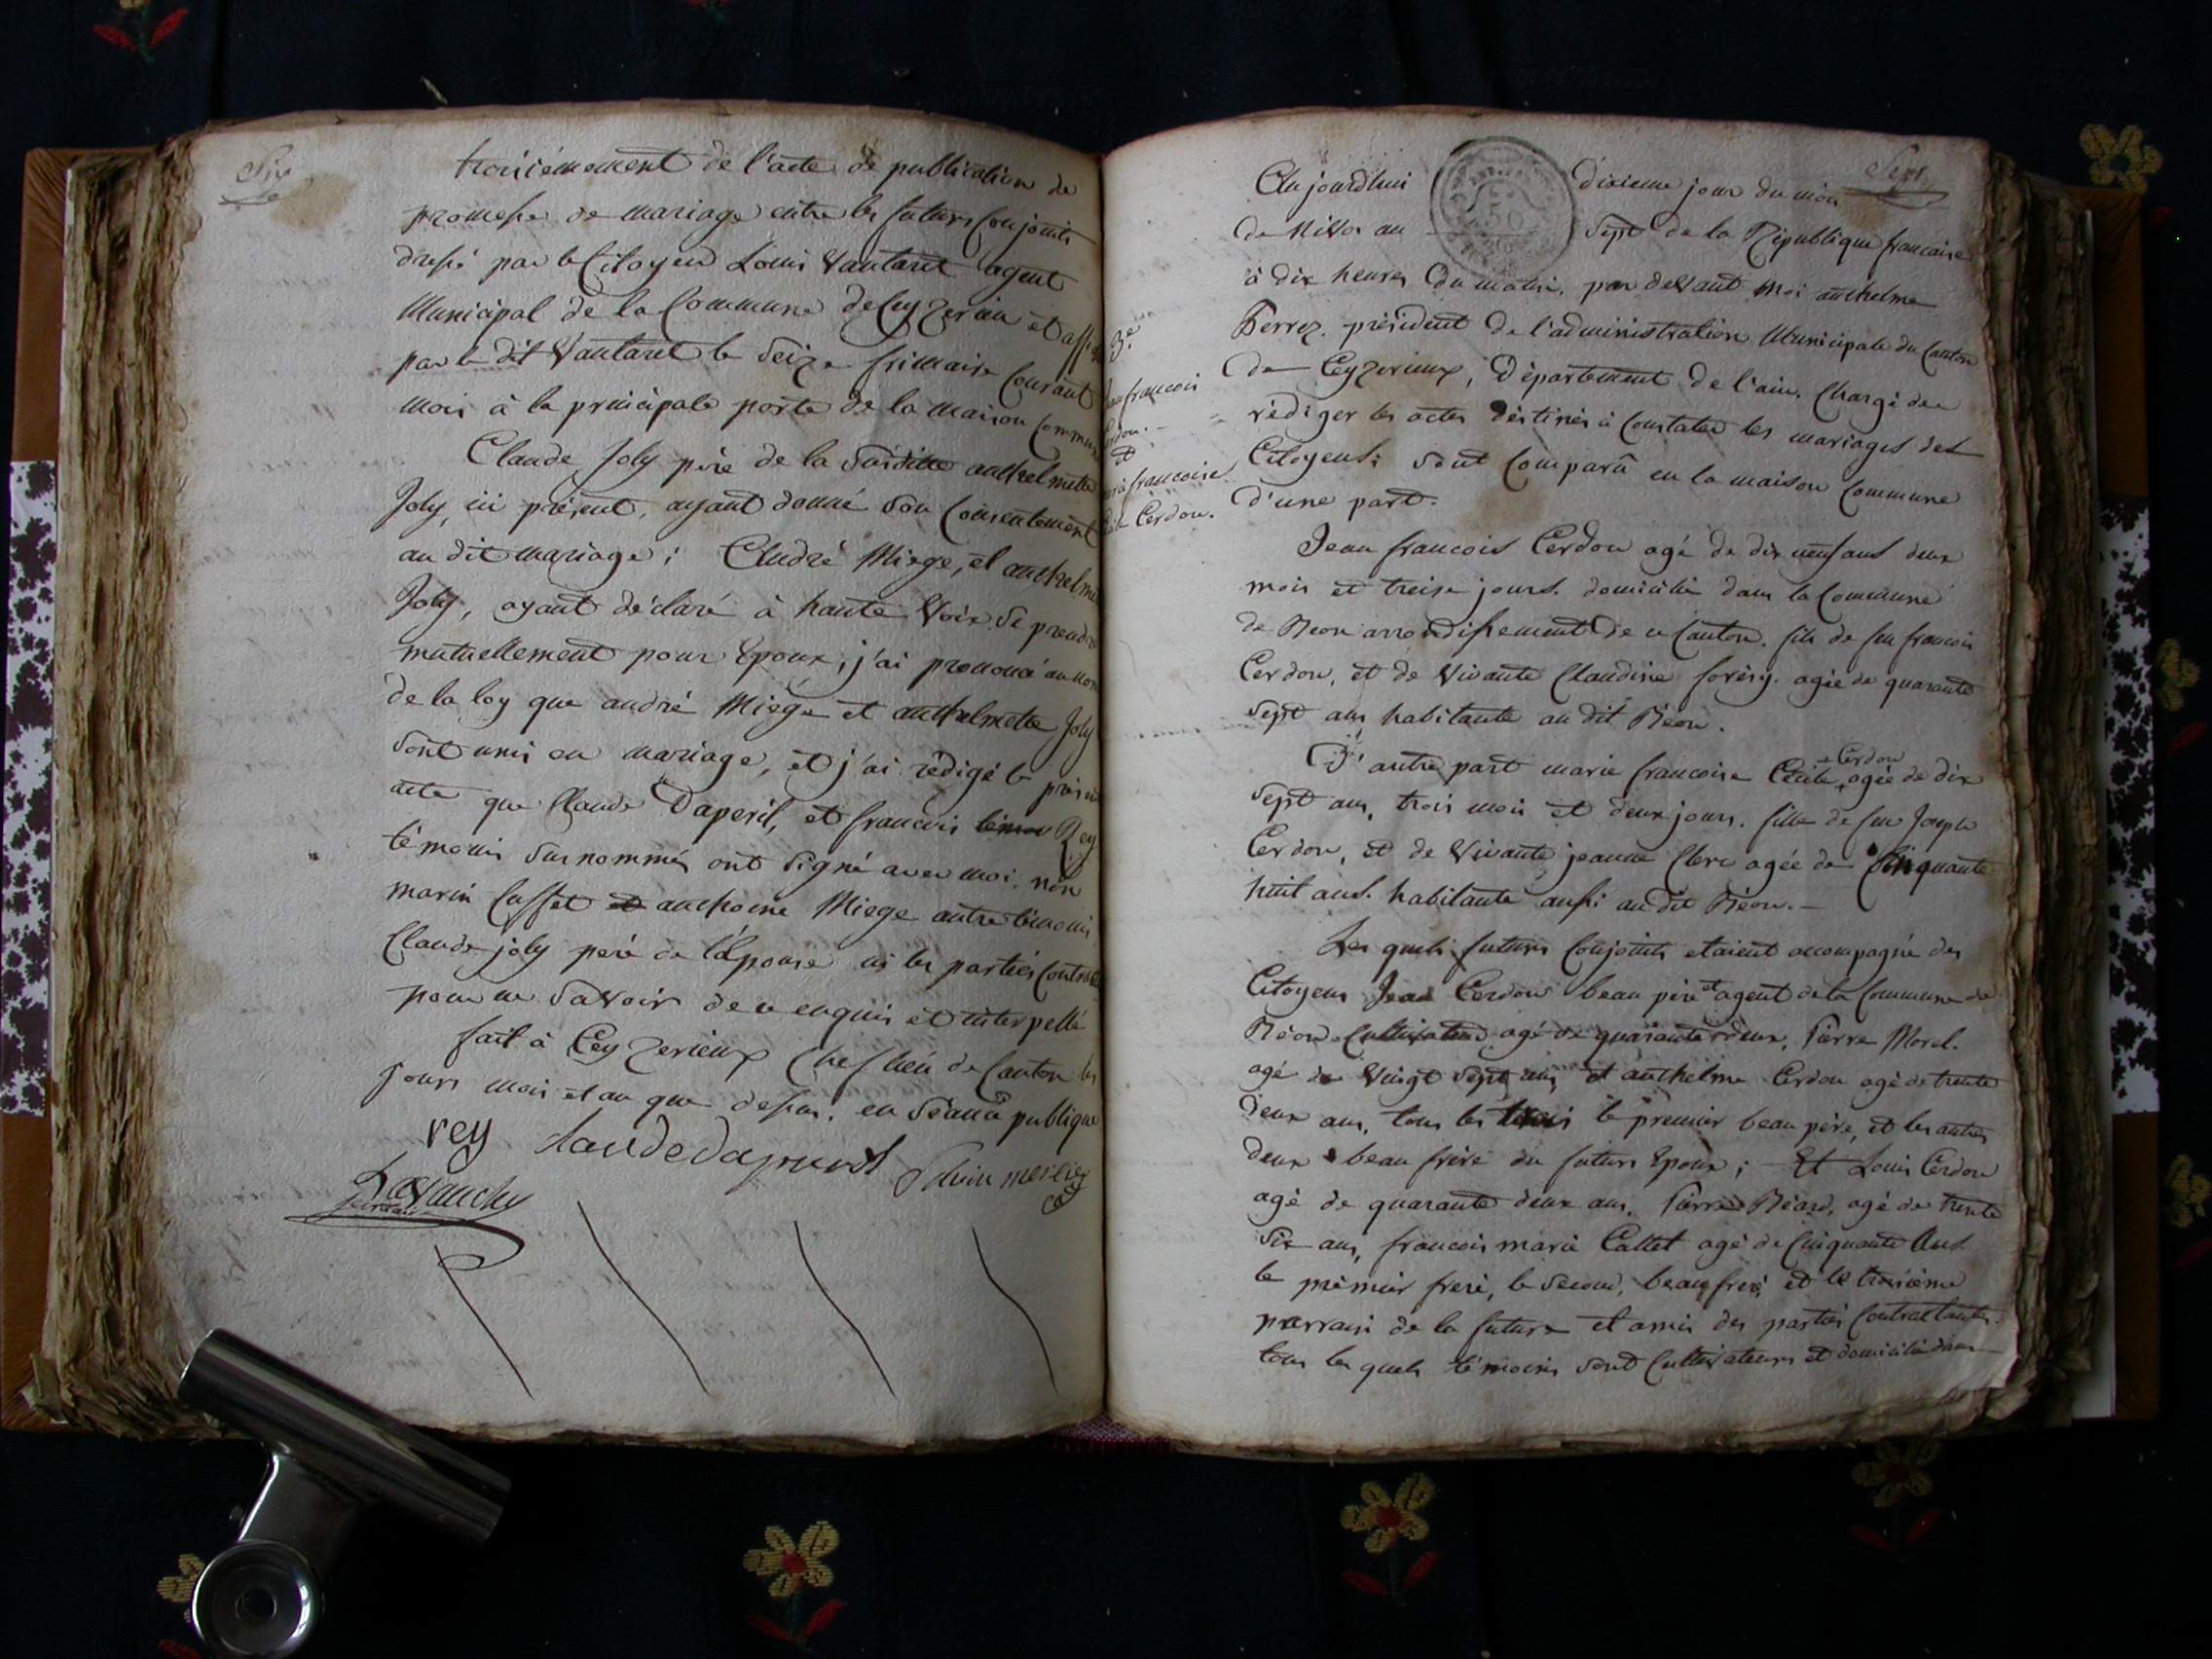 Six
troisièmement de l'acte de publication de
promesse de mariage entre les futurs conjoints
dressé par le Citoyen Louis Vautaret agent
Municipal de la Commune de Ceyzerieu et affiché
par le dit Vautaret le Seize frimaire Courant
mois à la principale porte de la maison commune
Claude Joly père de la Susditte anthelmette
Joly, ici présent, ayant donné son Consentement
au dit mariage; André Miege, et anthelmette
Joly, ayant déclaré à haute Voix Se prendre
mutuellement pour Epoux, j'ai prononcé au nom
de la loy que andré Miége et anthelmette Joly
Sont unis en mariage, et j'ai rédigé le présent
acte que Claude Daperil, et francois Rey
témoins Surnommés ont Signé avec moi. non
marin Cusset anthoine Miege autre témoins
Claude joly peré de l'épouse ni les partiés Contract
pour ne Savoir de ce enquis et interpellé
fait à Ceyzerieux Chef lieu de Canton les
jours mois et an que dessus. en Séance publique
rey Claude daperil
Sept
Aujourdhui dixieme jour du mois
de Nivos an Sept de la République francaise
à dix heures du matin. par devant Moi anthelme
Ferrez. président de l'administration Municipale du Canton
de Ceyzerieux, Département de l'ain. Chargé de
rédiger les actes déstinés à Constater les mariages des
Citoyens; Sont Comparû en la maison Commune
d'une part.
3.e
jean francois
Cerdon.
et
marie francoise
Cerdon.
Jean francois Cerdon agé de dix neuf ans deux
mois et treise jours. domicilié dans la Commune
de Béon arrondissement de ce Canton. fils de feu francois
Cerdon, et de Vivante Claudine agée de quarante
Sept ans habitante au dit Béon.
D'autre part marie francoise Cécile Cerdon agée de dix
Sept ans, trois mois et deux jours. fille de feu Joseph
Cerdon, et de Vivante jeanne Clerc agée de Cinquante
huit ans. habitante aussi au dit Béon.
Les quels futurs Conjoints etaient accompagné des
Citoyens Jean Cerdon beau père et agent de la Commune de
Béon Cultivateur agé de quarante deux, Pierre Morel.
agé de Vingt Sept ans et anthelme Cerdon agé de trente
deux ans, tous les trois le premier beau père, et les autres
deux beau frére du futurs Epoux; Et Louis Cerdon
agé de quarante deux ans, Pierre Béard, agé de trente
Six ans, francois marie Callet agé de Cinquante Ans.
le prémier freré, le Second, beau freré, et le troisième
parrain de la future et amis des partiés Contractantes.
tous les quels témoins Sont Cultivateurs et domicilié dans